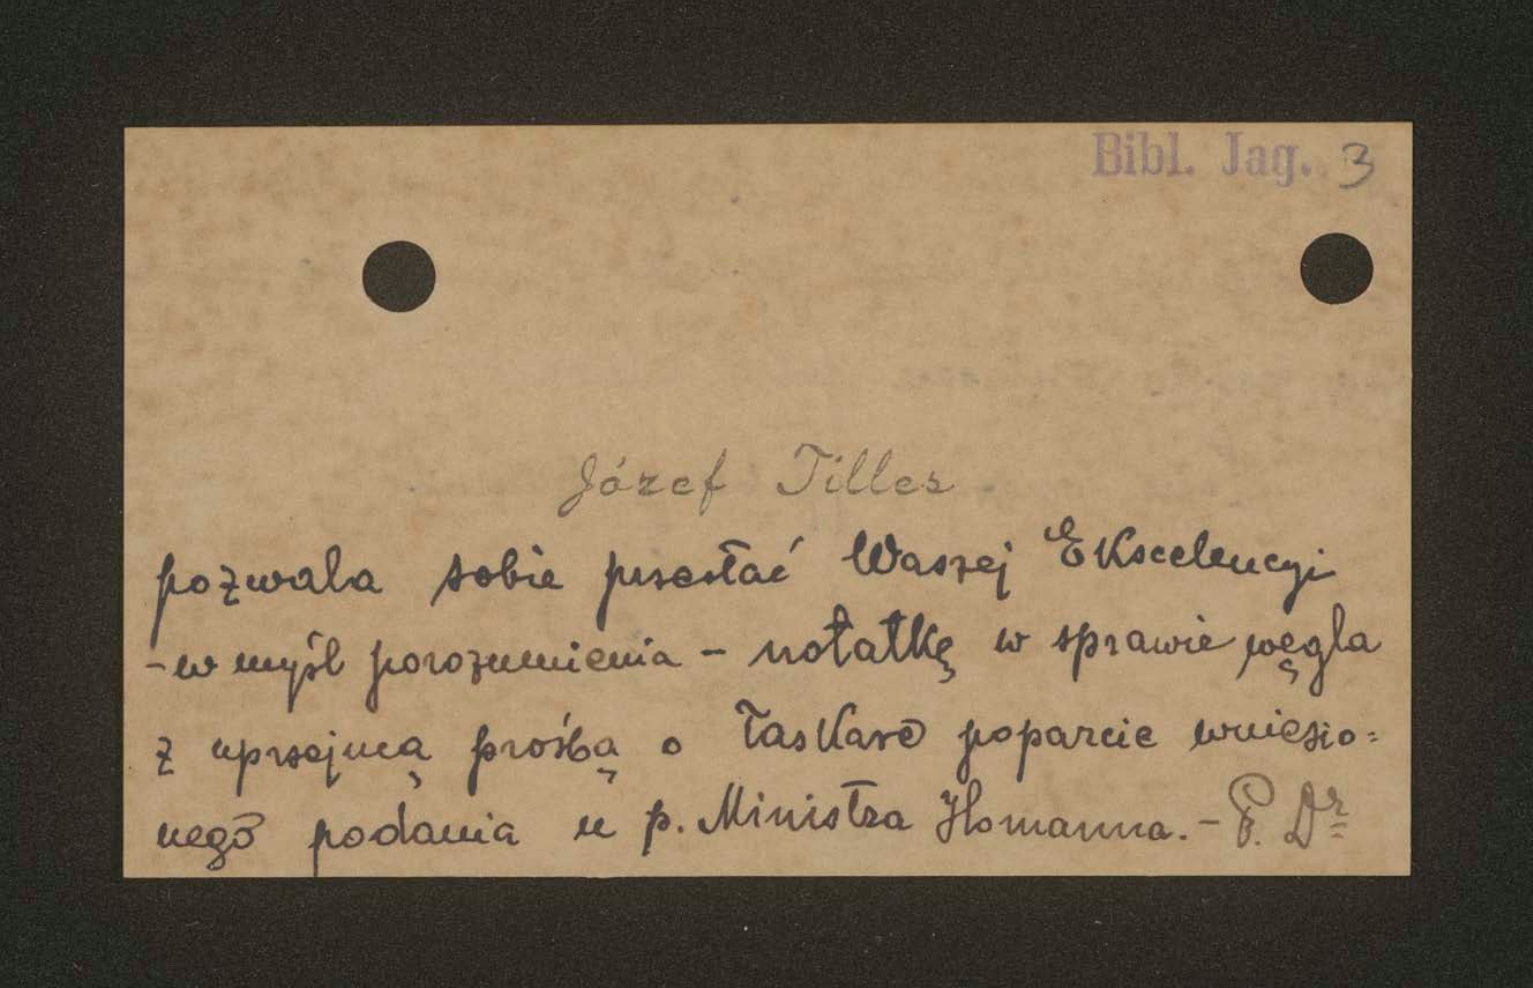 Bibl. Jag. 3
Józef Tilles
pozwala sobie przesłać Waszej Ekscelencyi
- w myśl porozumienia - notatkę w sprawie węgla
z uprzejmą prośbą o łaskawe poparcie wniesio=
nego podania u p. Ministra Homanna. - P. Dr